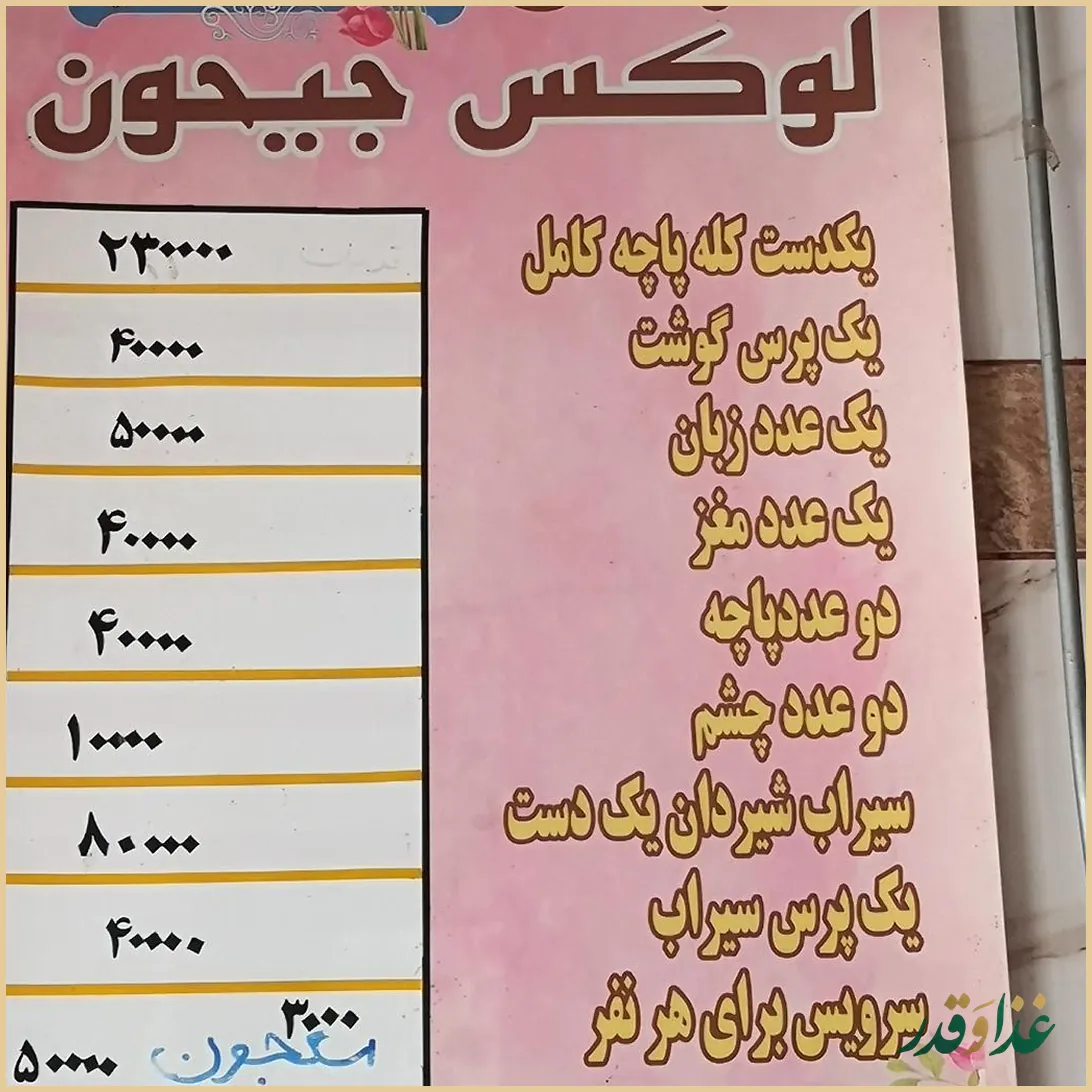 لوکس جیحون
یکدست کله پاچه کامل ۲۳۰۰۰۰
یک پرس گوشت ۴۰۰۰۰
یک عدد زبان ۵۰۰۰۰
یک عدد مغز ۴۰۰۰۰
دو عددپاچه ۴۰۰۰۰
دو عدد چشم ۱۰۰۰۰
سیراب شیردان یک دست ۸۰۰۰۰
یک پرس سیراب ۴۰۰۰۰
سرویس برای هر نفر ۳۰۰۰
معجون ۵۰۰۰۰
غذا و قدر